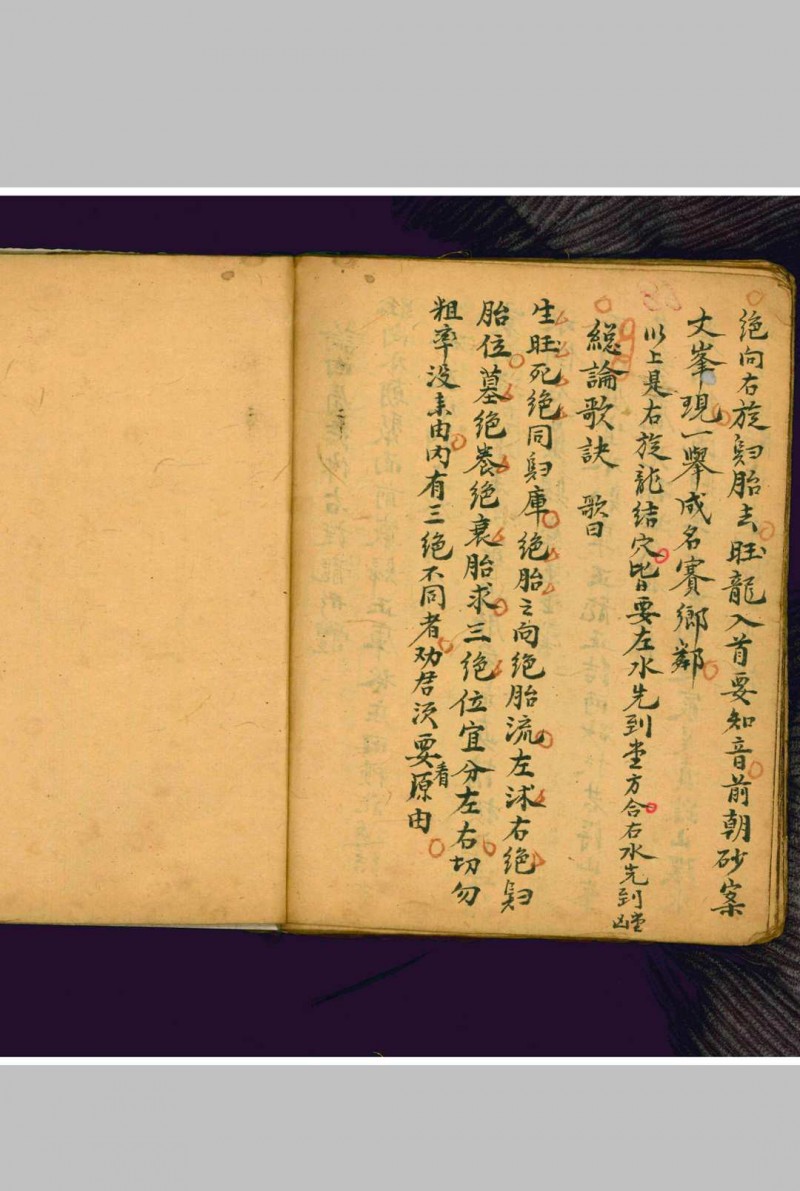 絶向右旋歸胎去旺龍入首要知音前朝砂案
文峯現一舉成名賽鄉鄰
以上是右旋龍結穴皆要左水先到堂方合右水先到堂凶
総論歌訣 歌曰
生旺死絶同歸庫絶胎之向絶胎流左沭右絶歸
胎位墓絶養絶衰胎求三絶位宜分左右切勿
粗率没来由内有三絶不同者劝君须要看原由